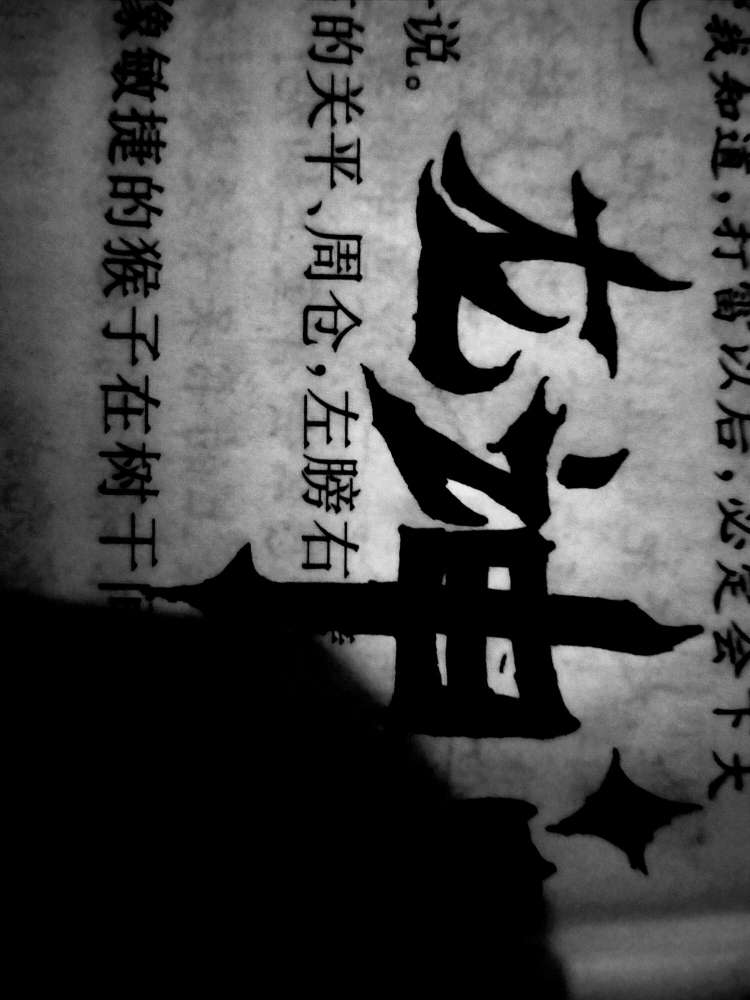 我知道，打雷以后，必定会下大
神
说。
的关平、周仓，左膀右
像敏捷的猴子在树干